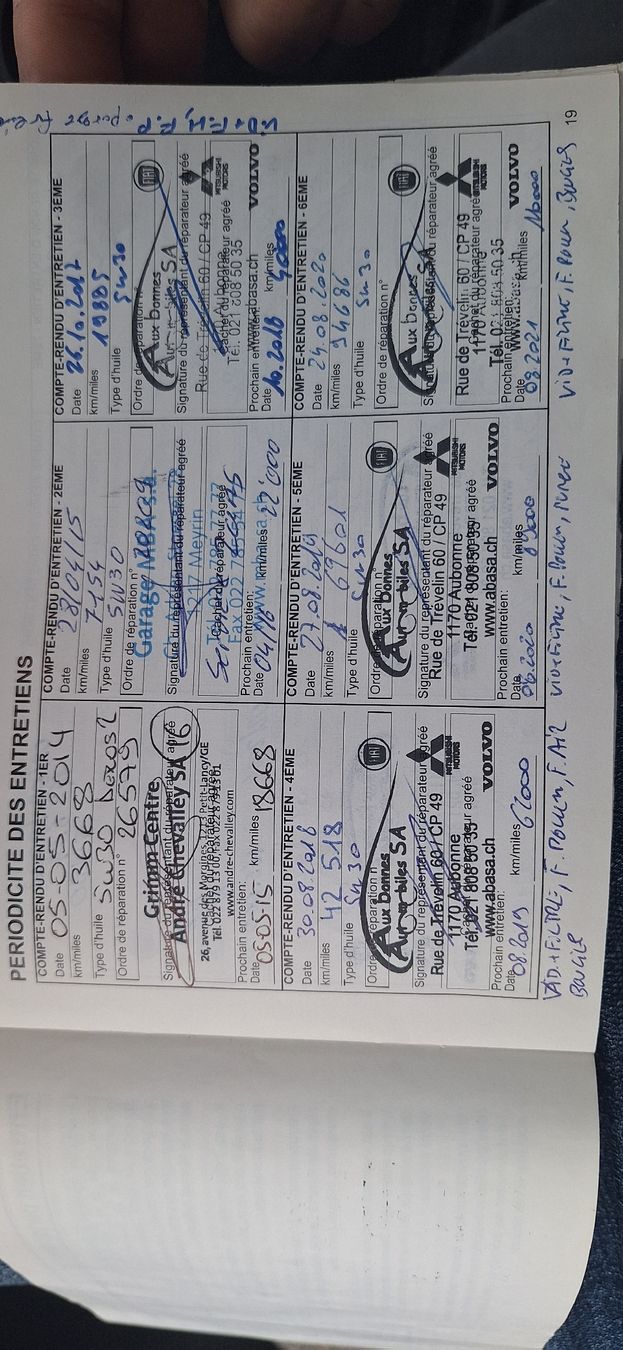 PERIODICITE DES ENTRETIENS
COMPTE-RENDU D'ENTRETIEN - 1ER
Date 05-05-2014
km/miles 3668
Type d'huile 5w30 Dexos2
Ordre de réparation n° 26579
Grimm Centre
Signature du représentant du réparateur agréé
André Chevalley SA 16
26, avenue des Morgines 1213 Petit-Lancy/GE
www.andre-chevalley.com
Prochain entretien:
Date 05-05-15 km/miles 18668
COMPTE-RENDU D'ENTRETIEN - 2EME
Date 28/04/15
km/miles 7154
Type d'huile 5W30
Ordre de réparation n°
Garage
Signature du représentant du réparateur agréé
1217 Meyrin
Cachet du réparateur agréé
Fax 022
Prochain entretien:
Date 04/16 km/miles 22'000
COMPTE-RENDU D'ENTRETIEN - 3EME
Date 26.10.2017
km/miles 19885
Type d'huile 5w30
Ordre de réparation n°
FIAT
Aux Bonnes
SA
Signature du représentant du réparateur agréé
Rue de Trévelin 60 / CP 49
MITSUBISHI MOTORS
Cachet du réparateur agréé
Tél. 021 808 50 35
www.abasa.ch
VOLVO
Prochain entretien:
Date 10.2018 km/miles
COMPTE-RENDU D'ENTRETIEN - 4EME
Date 30.08.2018
km/miles 42 518
Type d'huile 5w30
Ordre de réparation n°
FIAT
Aux Bonnes
SA
Signature du représentant du réparateur agréé
Rue de Trévelin 60 / CP 49
1170 Aubonne
MITSUBISHI MOTORS
Cachet du réparateur agréé
Tél. 021 808 50 35
www.abasa.ch
VOLVO
Prochain entretien:
Date 08.2019 km/miles
COMPTE-RENDU D'ENTRETIEN - 5EME
Date 27.08.2019
km/miles 69601
Type d'huile 5w30
Ordre de réparation n°
FIAT
Aux Bonnes
SA
Signature du représentant du réparateur agréé
Rue de Trévelin 60 / CP 49
1170 Aubonne
MITSUBISHI MOTORS
Cachet du réparateur agréé
Tél. 021 808 50 35
www.abasa.ch
VOLVO
Prochain entretien:
Date 2020 km/miles
COMPTE-RENDU D'ENTRETIEN - 6EME
Date 24.08.2020
km/miles 94686
Type d'huile 5w30
Ordre de réparation n°
FIAT
Aux Bonnes
SA
Signature du représentant du réparateur agréé
Rue de Trévelin 60 / CP 49
1170 Aubonne
MITSUBISHI MOTORS
Cachet du réparateur agréé
Tél. 021 808 50 35
www.abasa.ch
VOLVO
Prochain entretien:
Date 08 2021 km/miles
19